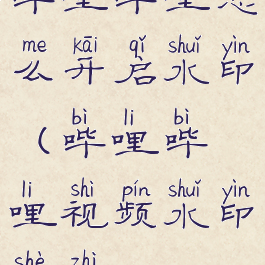 me kāi qǐ shuǐ yìn
么开启水印
bì li bì
(哔哩哔
li shì pín shuǐ yìn
哩视频水印
shè zhì